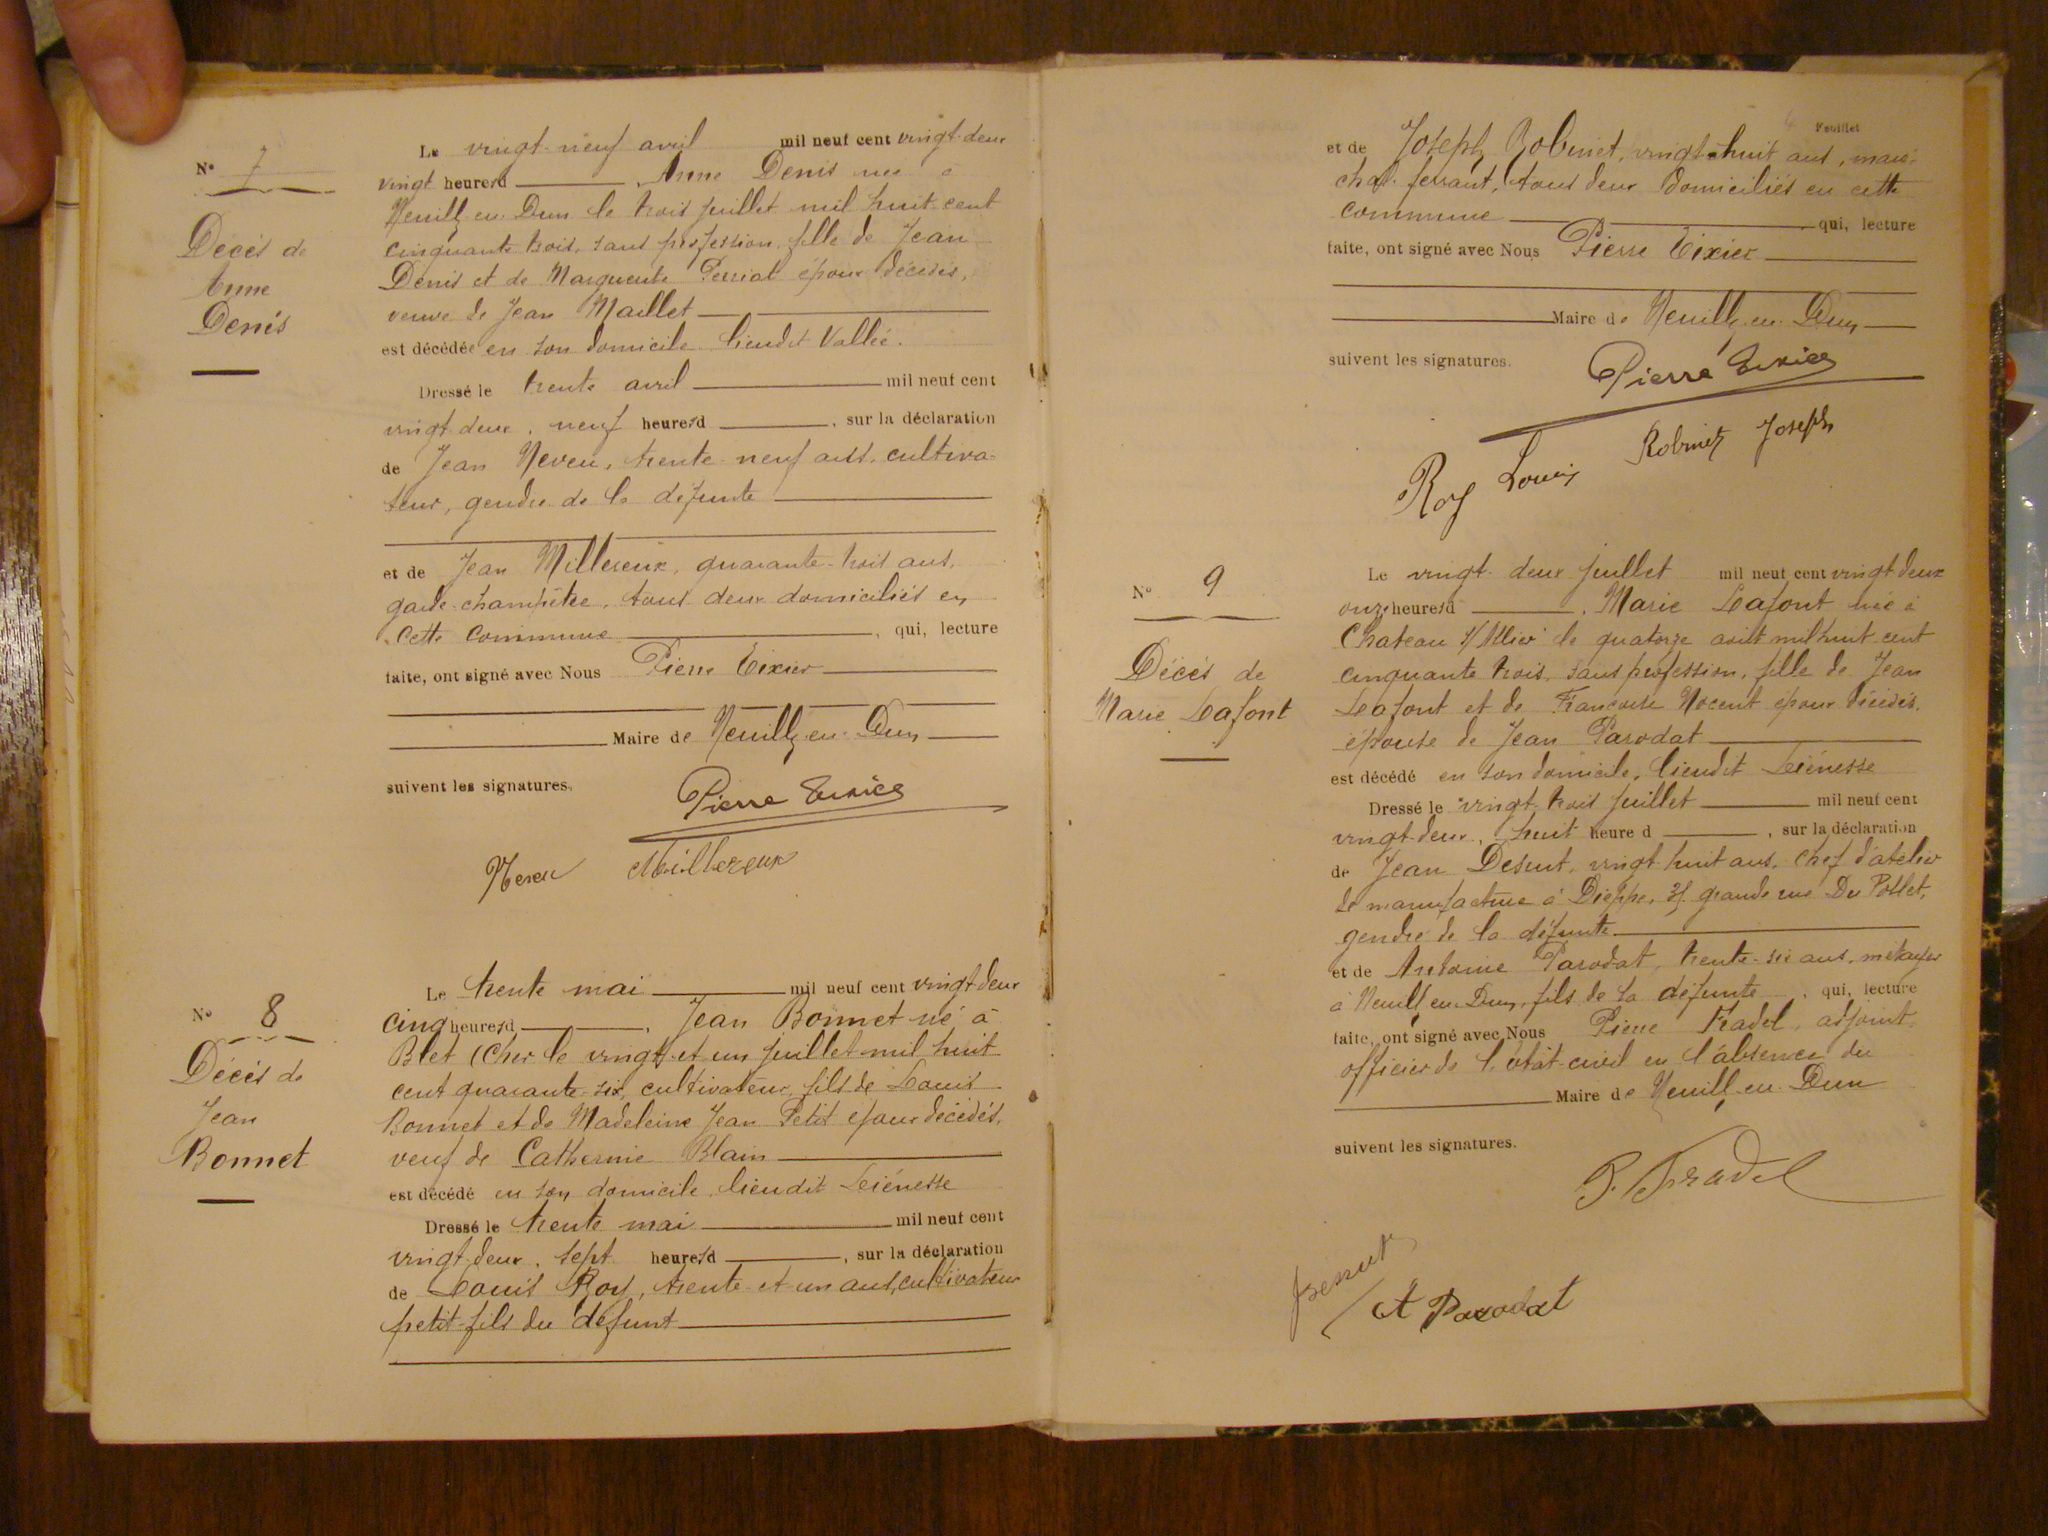 N° 7
Décès de
Anne
Denis
Le vingt-neuf avril mil neuf cent vingt-deux
vingt heures d , Anne Denis née à
Neuilly en Dun le trois juillet mil huit cent
cinquante trois, sans profession, fille de Jean
Denis et de Marguerite Perriat époux décédés,
veuve de Jean Maillet
est décédée en son domicile lieudit Vallée.
Dressé le trente avril mil neuf cent
vingt deux, neuf heures d , sur la déclaration
de Jean Neveu, trente-neuf ans, cultiva-
teur, gendre de la défunte
et de Jean Millereux, quarante-trois ans,
garde-champêtre, tous deux domiciliés en
cette commune , qui, lecture
faite, ont signé avec Nous Pierre Tixier
Maire de Neuilly-en-Dun
suivent les signatures.
Pierre Tixier
Neveu Millereux
N° 8
Décés de
Jean
Bonnet
Le trente mai mil neuf cent vingt deux
cinq heures d , Jean Bonnet né à
Blet (Cher le vingt et un juillet mil huit
cent quarante-six, cultivateur, fils de Louis
Bonnet et de Madeleine Jean Petit époux décédés,
veuf de Catherine Blain
est décédé en son domicile, lieudit
Dressé le trente mai mil neuf cent
vingt deux, sept heures d , sur la déclaration
de Louis Roy, trente et un ans, cultivateur
petit-fils du défunt
Feuillet
et de Joseph Robinet, vingt-huit ans, maré-
chal ferrant, tous deux domiciliés en cette
commune qui, lecture
faite, ont signé avec Nous Pierre Tixier
Maire de Neuilly-en-Dun
suivent les signatures.
Pierre Tixier
Roy Louis Robinet Joseph
N° 9
Décés de
Marie Lafont
Le vingt-deux juillet mil neuf cent vingt deux
onze heures d , Marie Lafont née à
Chateau s/ Allier le quatorze août mil huit cent
cinquante trois, sans profession, fille de Jean
Lafont et de Francoise Nocent époux décédés,
épouse de Jean Parodat
est décédé en son domicile, lieudit
Dressé le vingt-trois juillet mil neuf cent
vingt-deux, huit heure d , sur la déclaration
de Jean , vingt-huit ans, chef d'atelier
de manufacture à Dieppe, grande rue Du Pollet,
gendre de la défunte
et de Antoine Parodat, trente-six ans, métayer
à Neuilly en Dun, fils de la défunte , qui, lecture
faite, ont signé avec Nous Pierre Fradel, adjoint
officier de l'état-civil en l'absence du
Maire de Neuilly-en-Dun
suivent les signatures.
P. Fradel
A Parodat